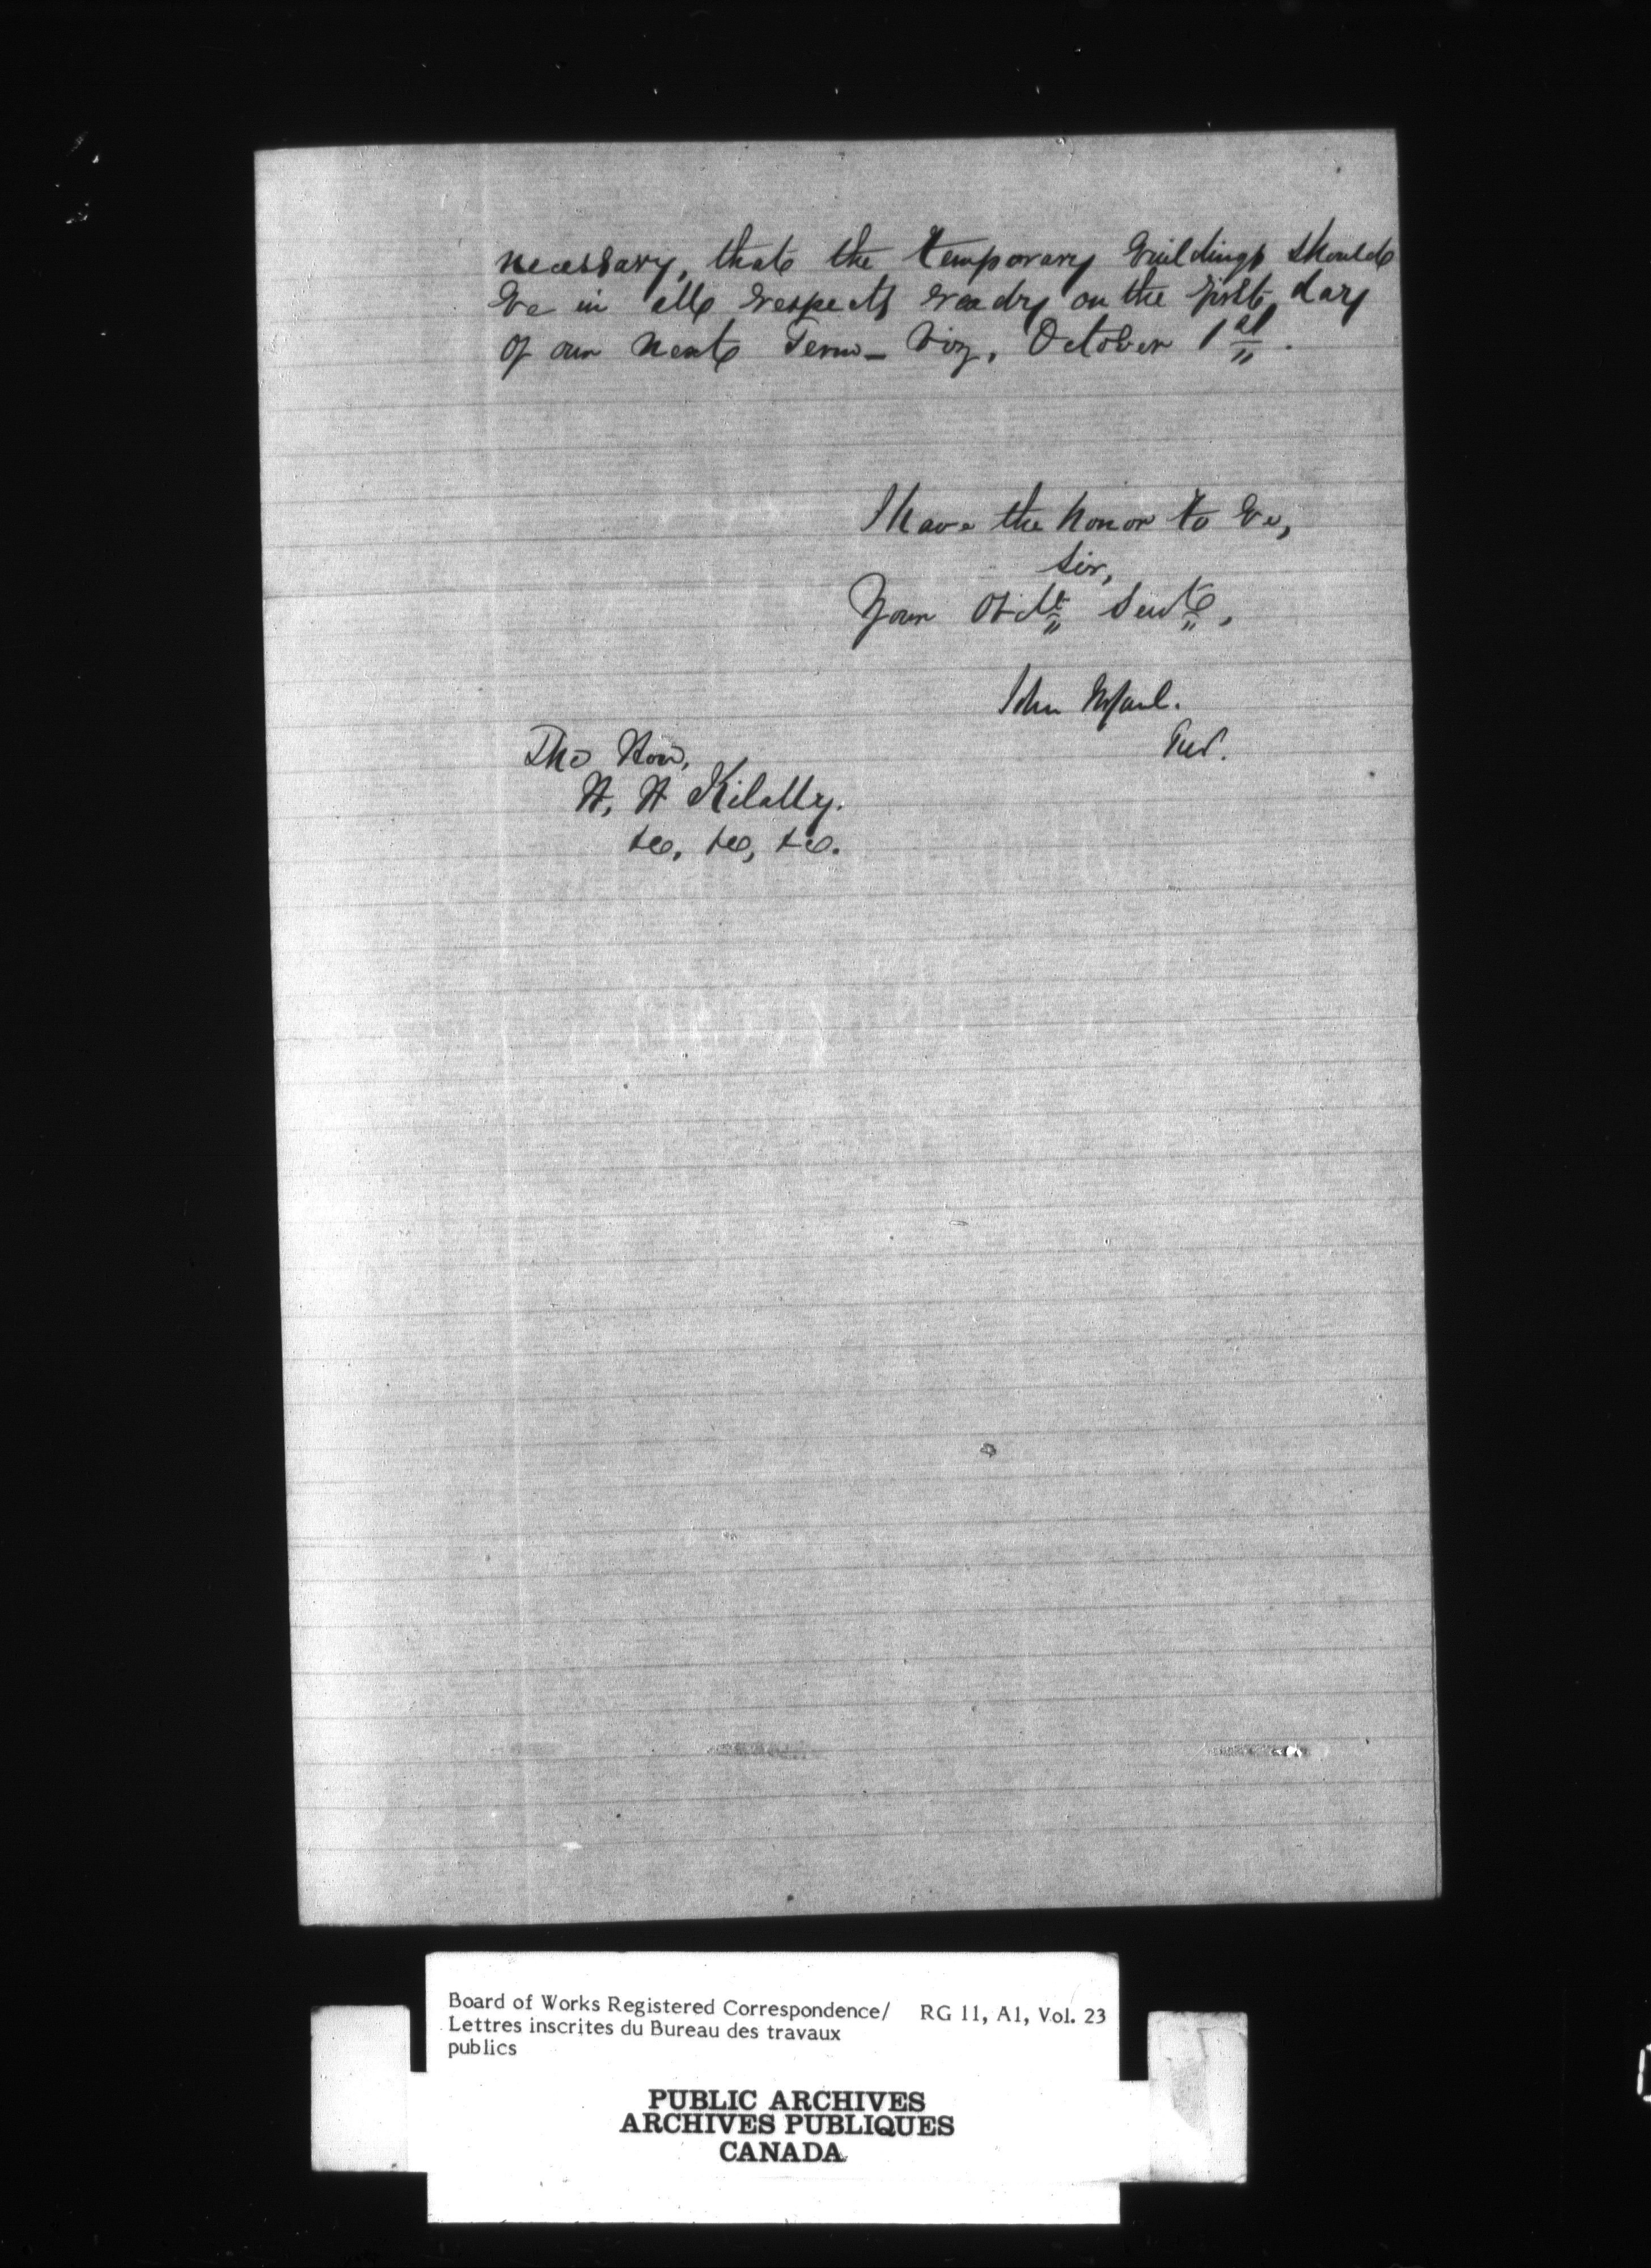 necessary, that the temporary buildings should
be in all respects ready on the first day
of our next Term – Viz, October 1st.
I have the honor to be,
Sir,
Your Obdt Servt,
John McCaul.
The Hon,
H, H Kilally.
&c, &c, &c.
Board of Works Registered Correspondence/ RG 11, A1, Vol. 23
Lettres inscrites du Bureau des travaux
publics
PUBLIC ARCHIVES
ARCHIVES PUBLIQUES
CANADA